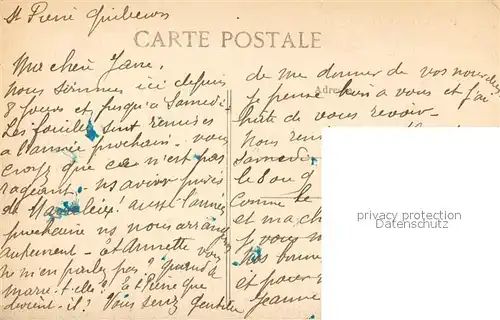 St Pierre Quiberon
CARTE POSTALE
Ma chère Jane,
nous sommes ici depuis
8 jours et jusqu'à Samedi
Les fouilles sont remises
à l'année prochaine. vous
croyez que ce n'est pas
rageant - ns avions
de aussi l'année
prochaine ns nous
autrement - et Annette vous
ne m'en parlez pas? quand
marie-t-elle? Et Pierre que
devient-il? Vous serez gentille
de me donner de vos nouvelles
Je pense bien à vous et j'ai
hâte de vous revoir -
Nous
Samedi
le 8 ou 9
Comme le
et ma
Je vous
Vos bonne
et pour
Jeanne
privacy protection
Datenschutz